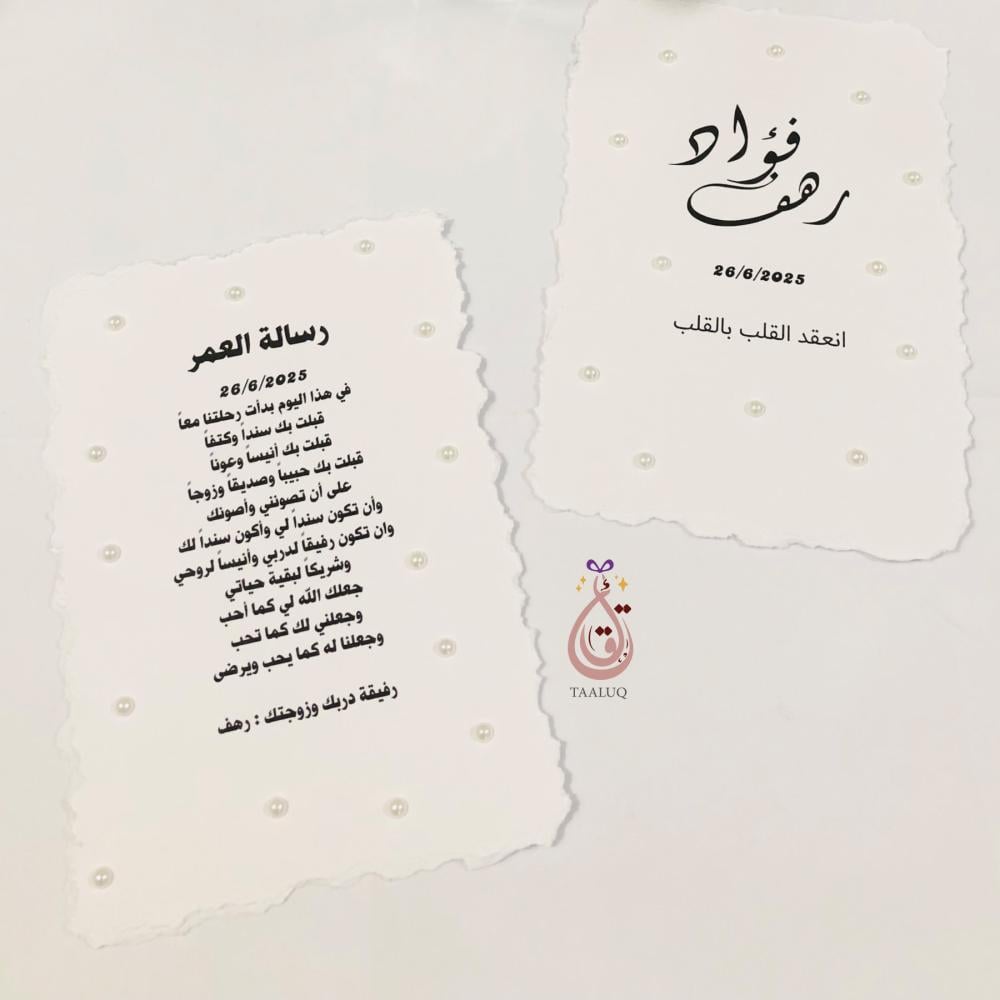 فؤاد
رهف
26/6/2025
انعقد القلب بالقلب
رسالة العمر
26/6/2025
في هذا اليوم بدأت رحلتنا معاً
قبلت بك سنداً وكتفاً
قبلت بك أنيساً وعوناً
قبلت بك حبيباً وصديقاً وزوجاً
على أن تصونني وأصونك
وأن تكون سنداً لي وأكون سنداً لك
وان تكون رفيقاً لدربي وأنيساً لروحي
وشريكاً لبقية حياتي
جعلك الله لي كما أحب
وجعلني لك كما تحب
وجعلنا له كما يحب ويرضى
رفيقة دربك وزوجتك : رهف
TAALUQ